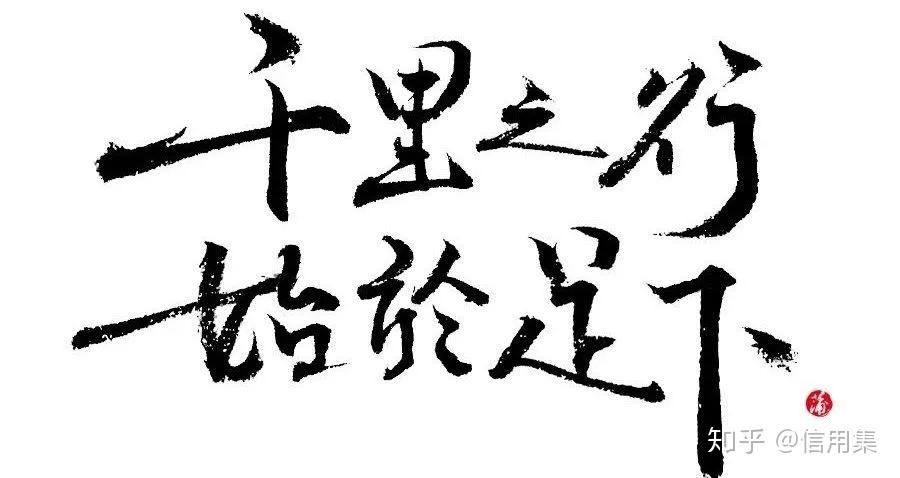 千里之行
始於足下
蒲
知乎 @信用集